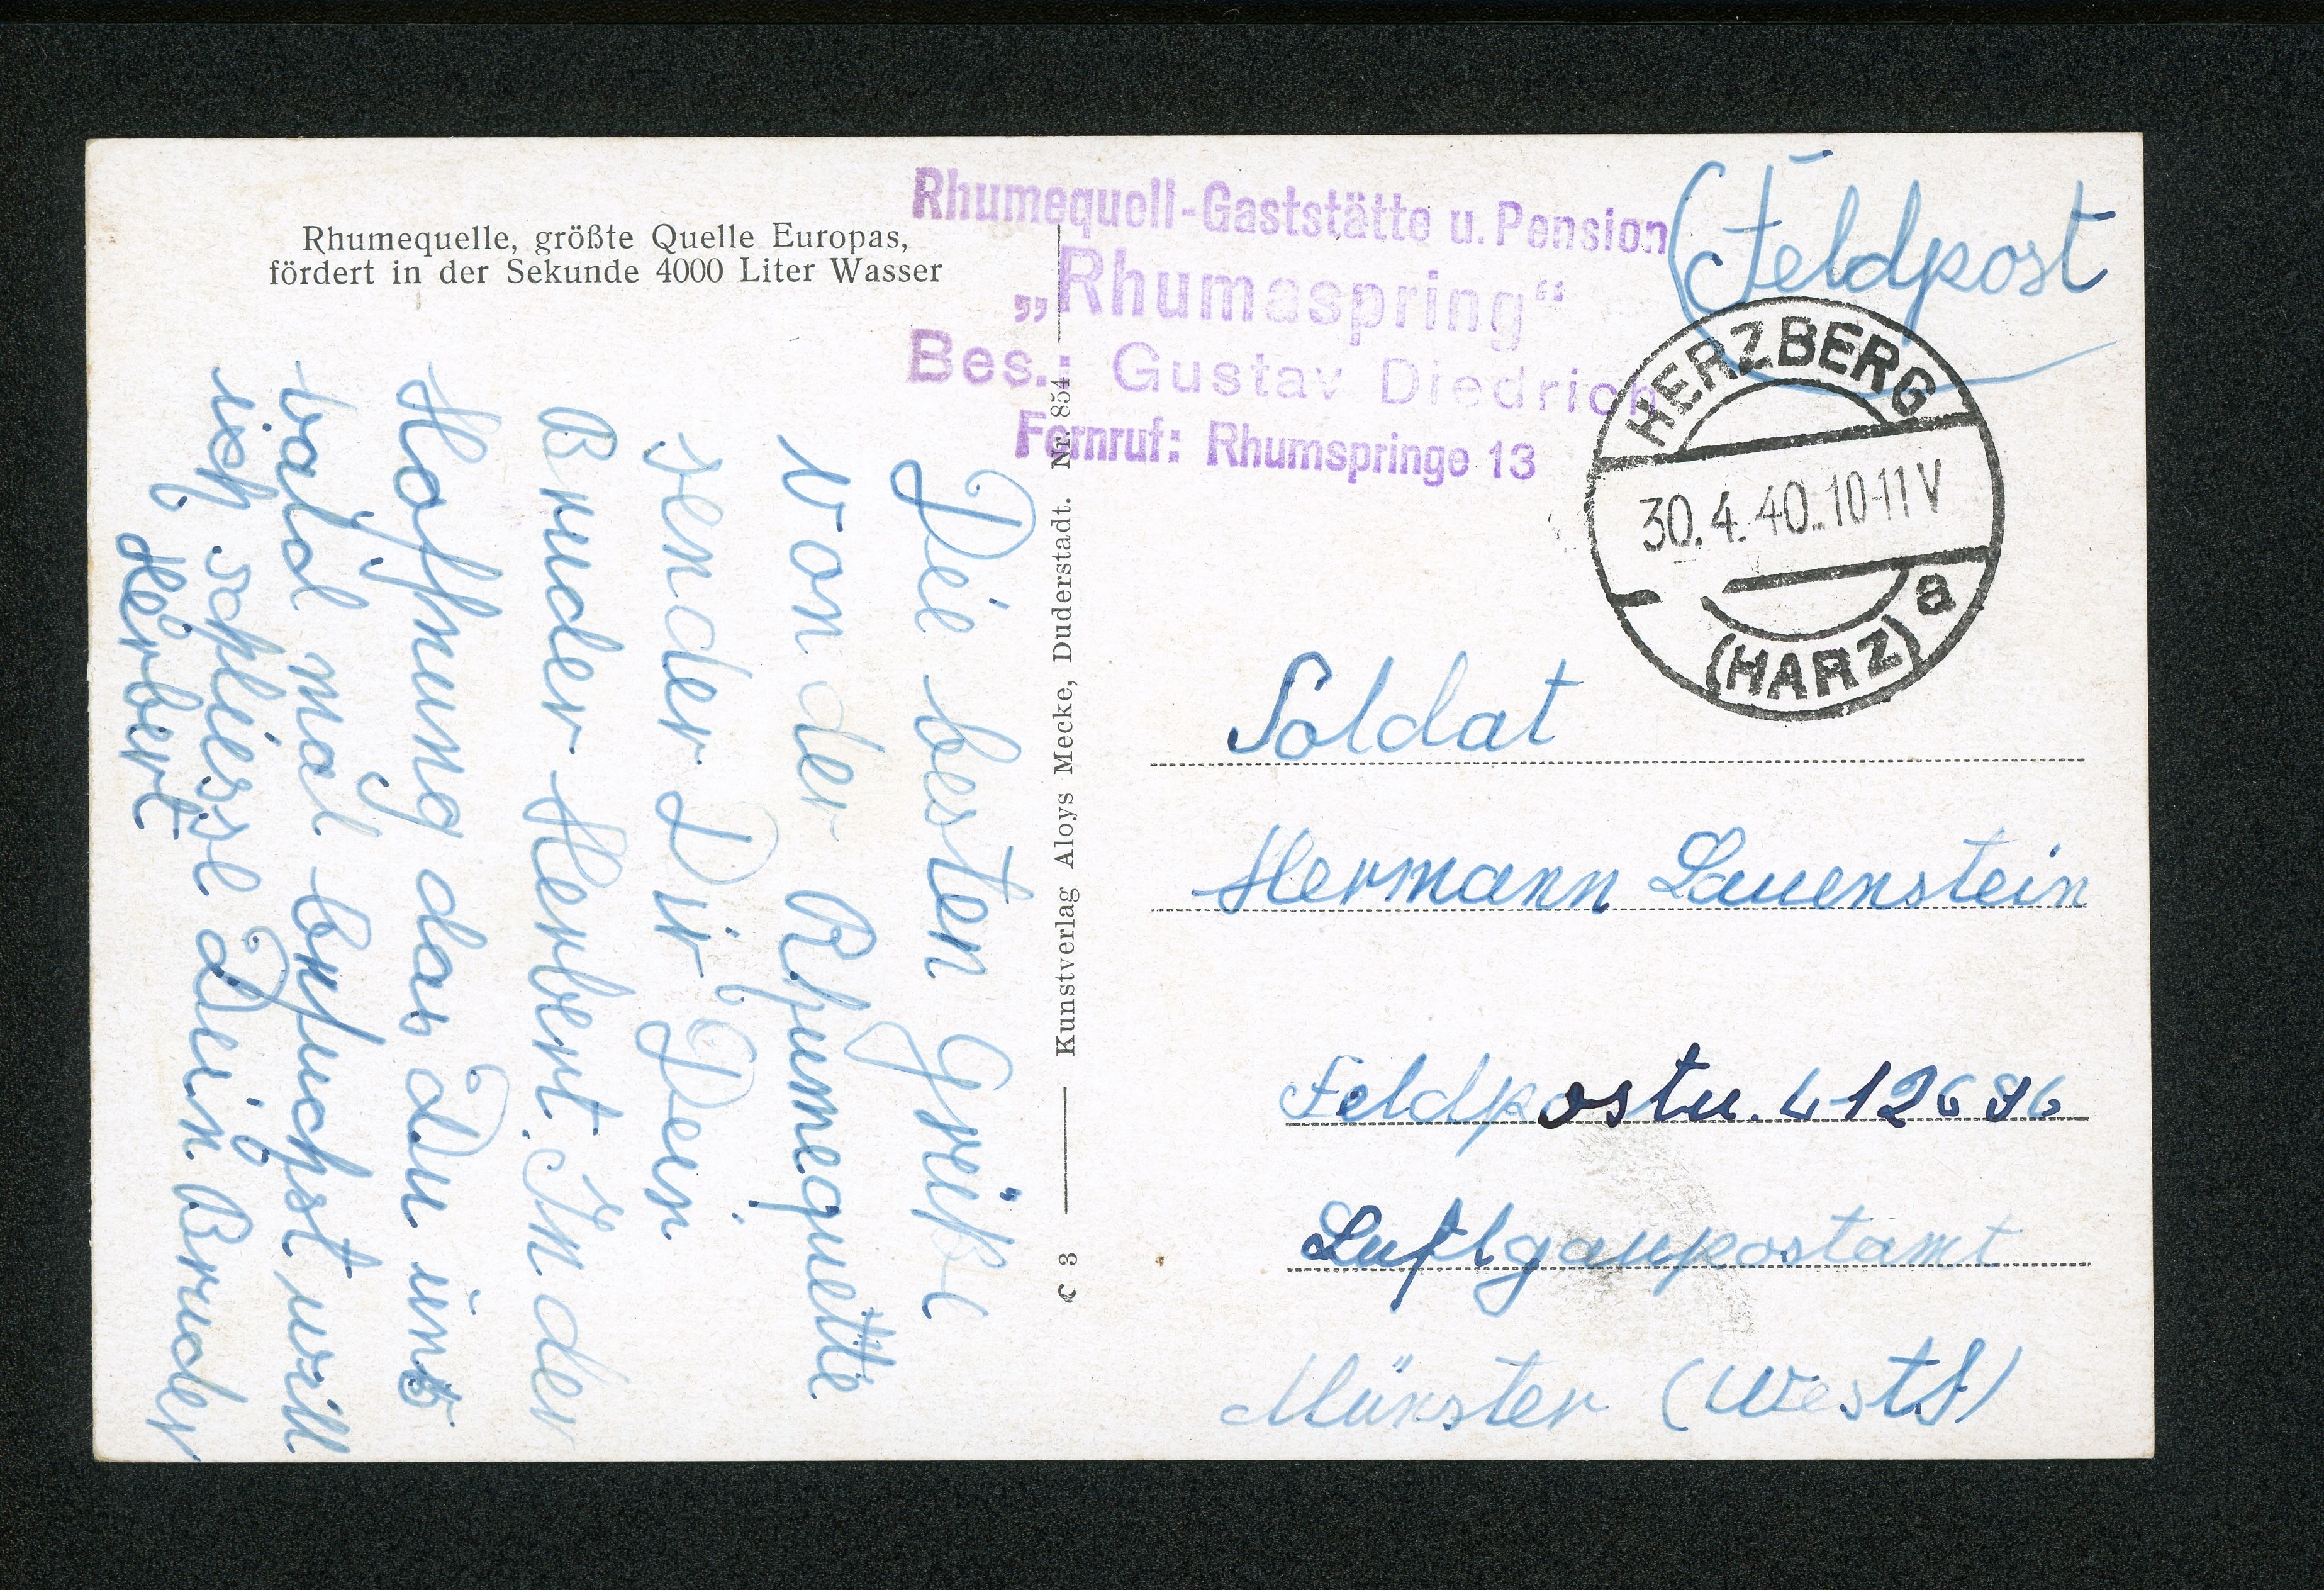 Rhumequelle, größte Quelle Europas,
fördert in der Sekunde 4000 Liter Wasser
Rhumequell-Gaststätte u. Pension
„Rhumaspring“
Bes.: Gustav Diedrich
Fernruf: Rhumspringe 13
Feldpost
HERZBERG
30.4.40.10-11V
a
(HARZ)
Die besten Grüße
von der Rhumequelle
sender Dir Dein
Bruder Herbert. In der
Hoffnung das Du uns
bald mal besuchst will
ich schliesse Dein Bruder
Herbert
C 3 Kunstverlag Aloys Mecke, Duderstadt. Nr. 854
Soldat
Hermann Lauenstein
Feldpostn. L 12696
Luftgaupostamt
Münster (Westf)